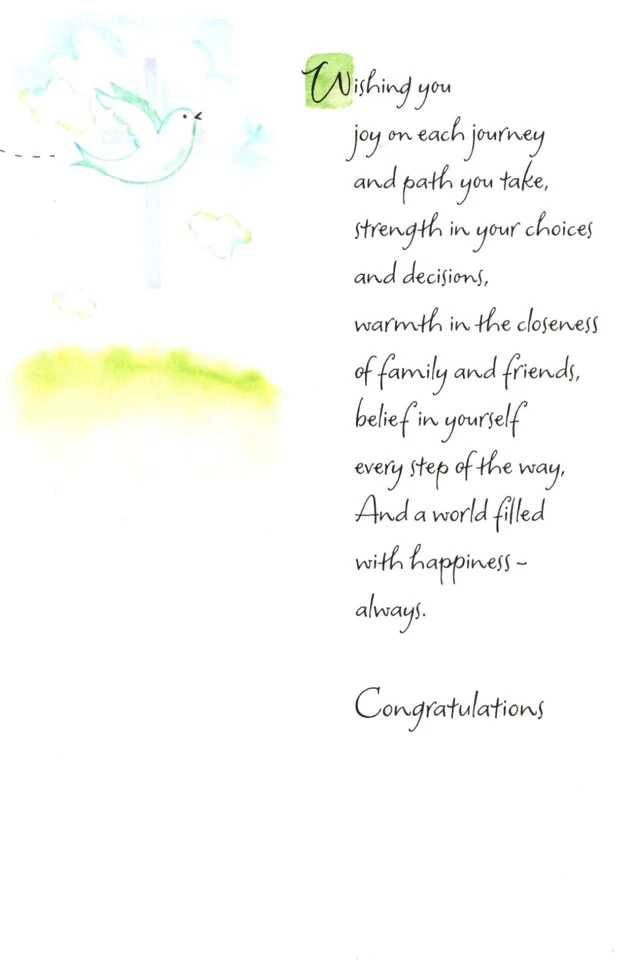 Wishing you
joy on each journey
and path you take,
strength in your choices
and decisions,
warmth in the closeness
of family and friends,
belief in yourself
every step of the way,
And a world filled
with happiness –
always.
Congratulations